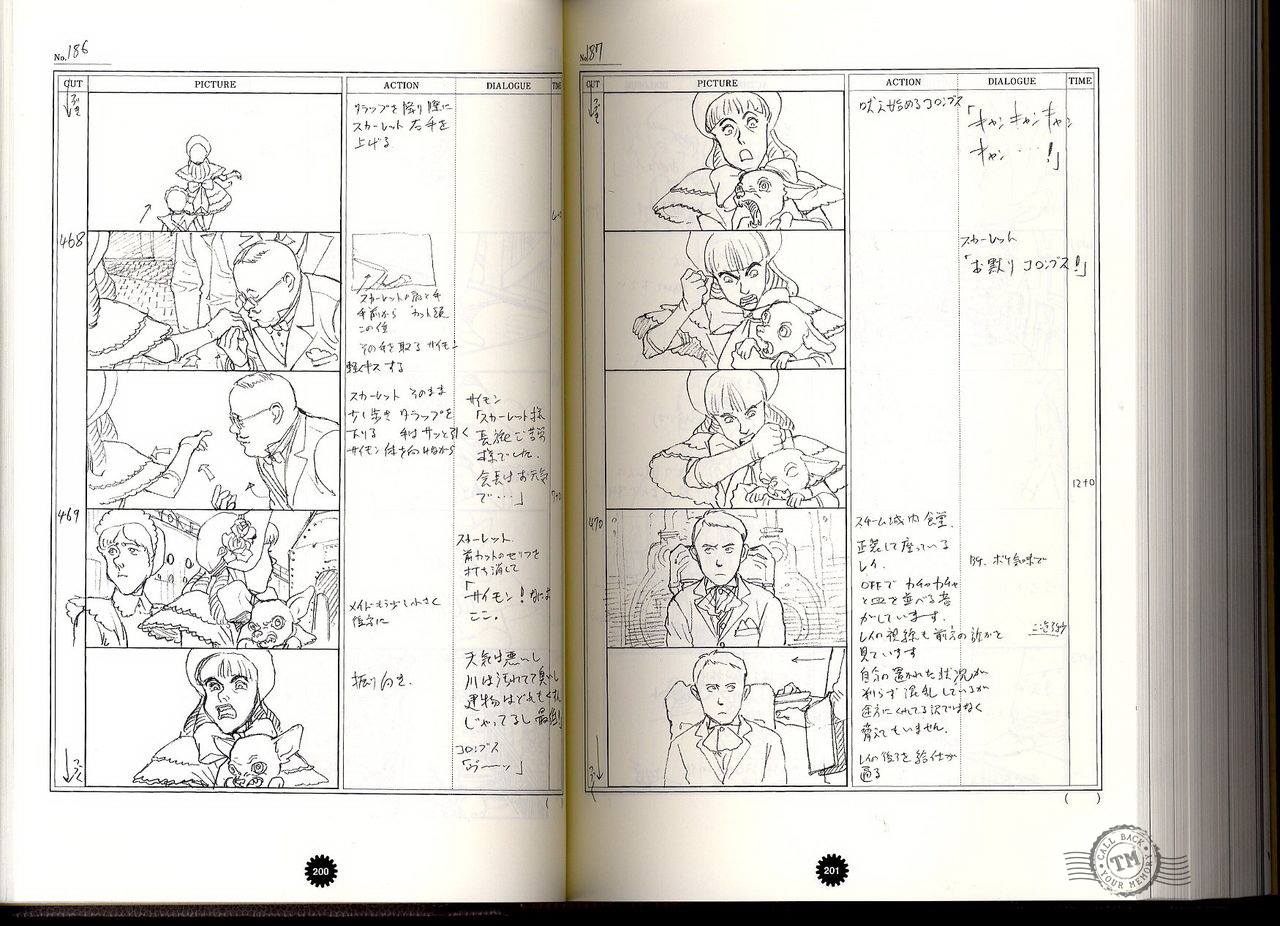 No. 186
CUT PICTURE ACTION DIALOGUE TIME
つづき
タラップを降り際に
スカーレット 右手を
上げる
6+0
468
スカーレットの肩と手
手前から カット頭
この位
その手を取る サイモン
軽くキスする
スカーレット そのまま
少し歩き タラップを
下りる 手はサッと引く
サイモン 体を向けながら
サイモン
「スカーレット様
長旅ご苦労
様でした
会長はお元気
で…」
7+0
469
メイド もう少し小さく
後方に
スカーレット
前カットのセリフを
打ち消して
「サイモン!なによ
ここ。
振り向き、
天気は悪いし
川は汚れてて臭いし
建物はどれもくす
じゃってるし 最低」
コロンブス
「ヴ〜〜ッ」
つづく
( )
200
No. 187
CUT PICTURE ACTION DIALOGUE TIME
つづき
吠え始めるコロンブス
「キャンキャンキャン
キャン…!」
スカーレット
「お黙り コロンブス!」
12+0
470
スチーム城内 食堂
正装して座っている
レイ、
OFFで カチャカチャ
と皿を並べる音
がしています。
レイの視線も前方の誰かを
見ています
自分の置かれた状況が
判らず 混乱しているが
途方にくれてる訳ではなく
脅えてもいません。
レイの後ろを給仕が
通る
BG、ボケ気味で
つづく
( )
201
CALL BACK
TM
YOUR MEMORY